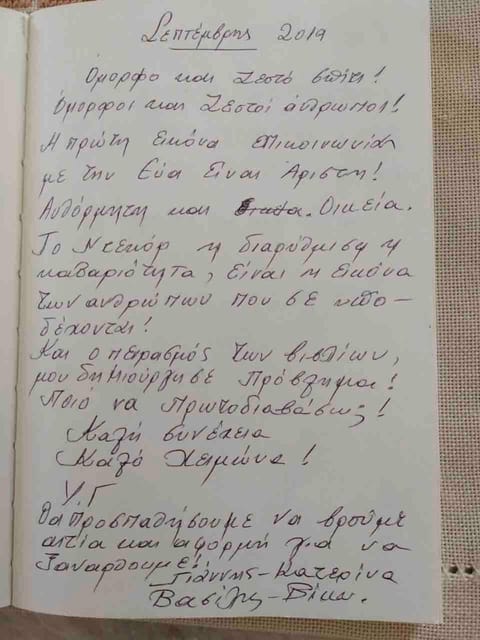 Σεπτέμβρης 2019
Όμορφο και ζεστό σπίτι!
Όμορφοι και ζεστοί άνθρωποι!
Η πρώτη εικόνα επικοινωνία
με την Εύα είναι Άριστη!
Αυθόρμητη και Οικεία.
Το Ντεκόρ η διαρύθμιση η
καθαριότητα, είναι η εικόνα
των ανθρώπων που σε υπο-
δέχονται!
Και ο πειρασμός των βιβλίων,
μου δημιούργησε Πρόβλημα!
Ποιο να Πρωτοδιαβάσω;!
Καλή συνέχεια
Καλό Χειμώνα!
Υ.Γ
Θα προσπαθήσουμε να βρούμε
αιτία και αφορμή για να
ξαναρθουμε!
Γιάννης - Κατερίνα
Βασίλης - Βίκυ.